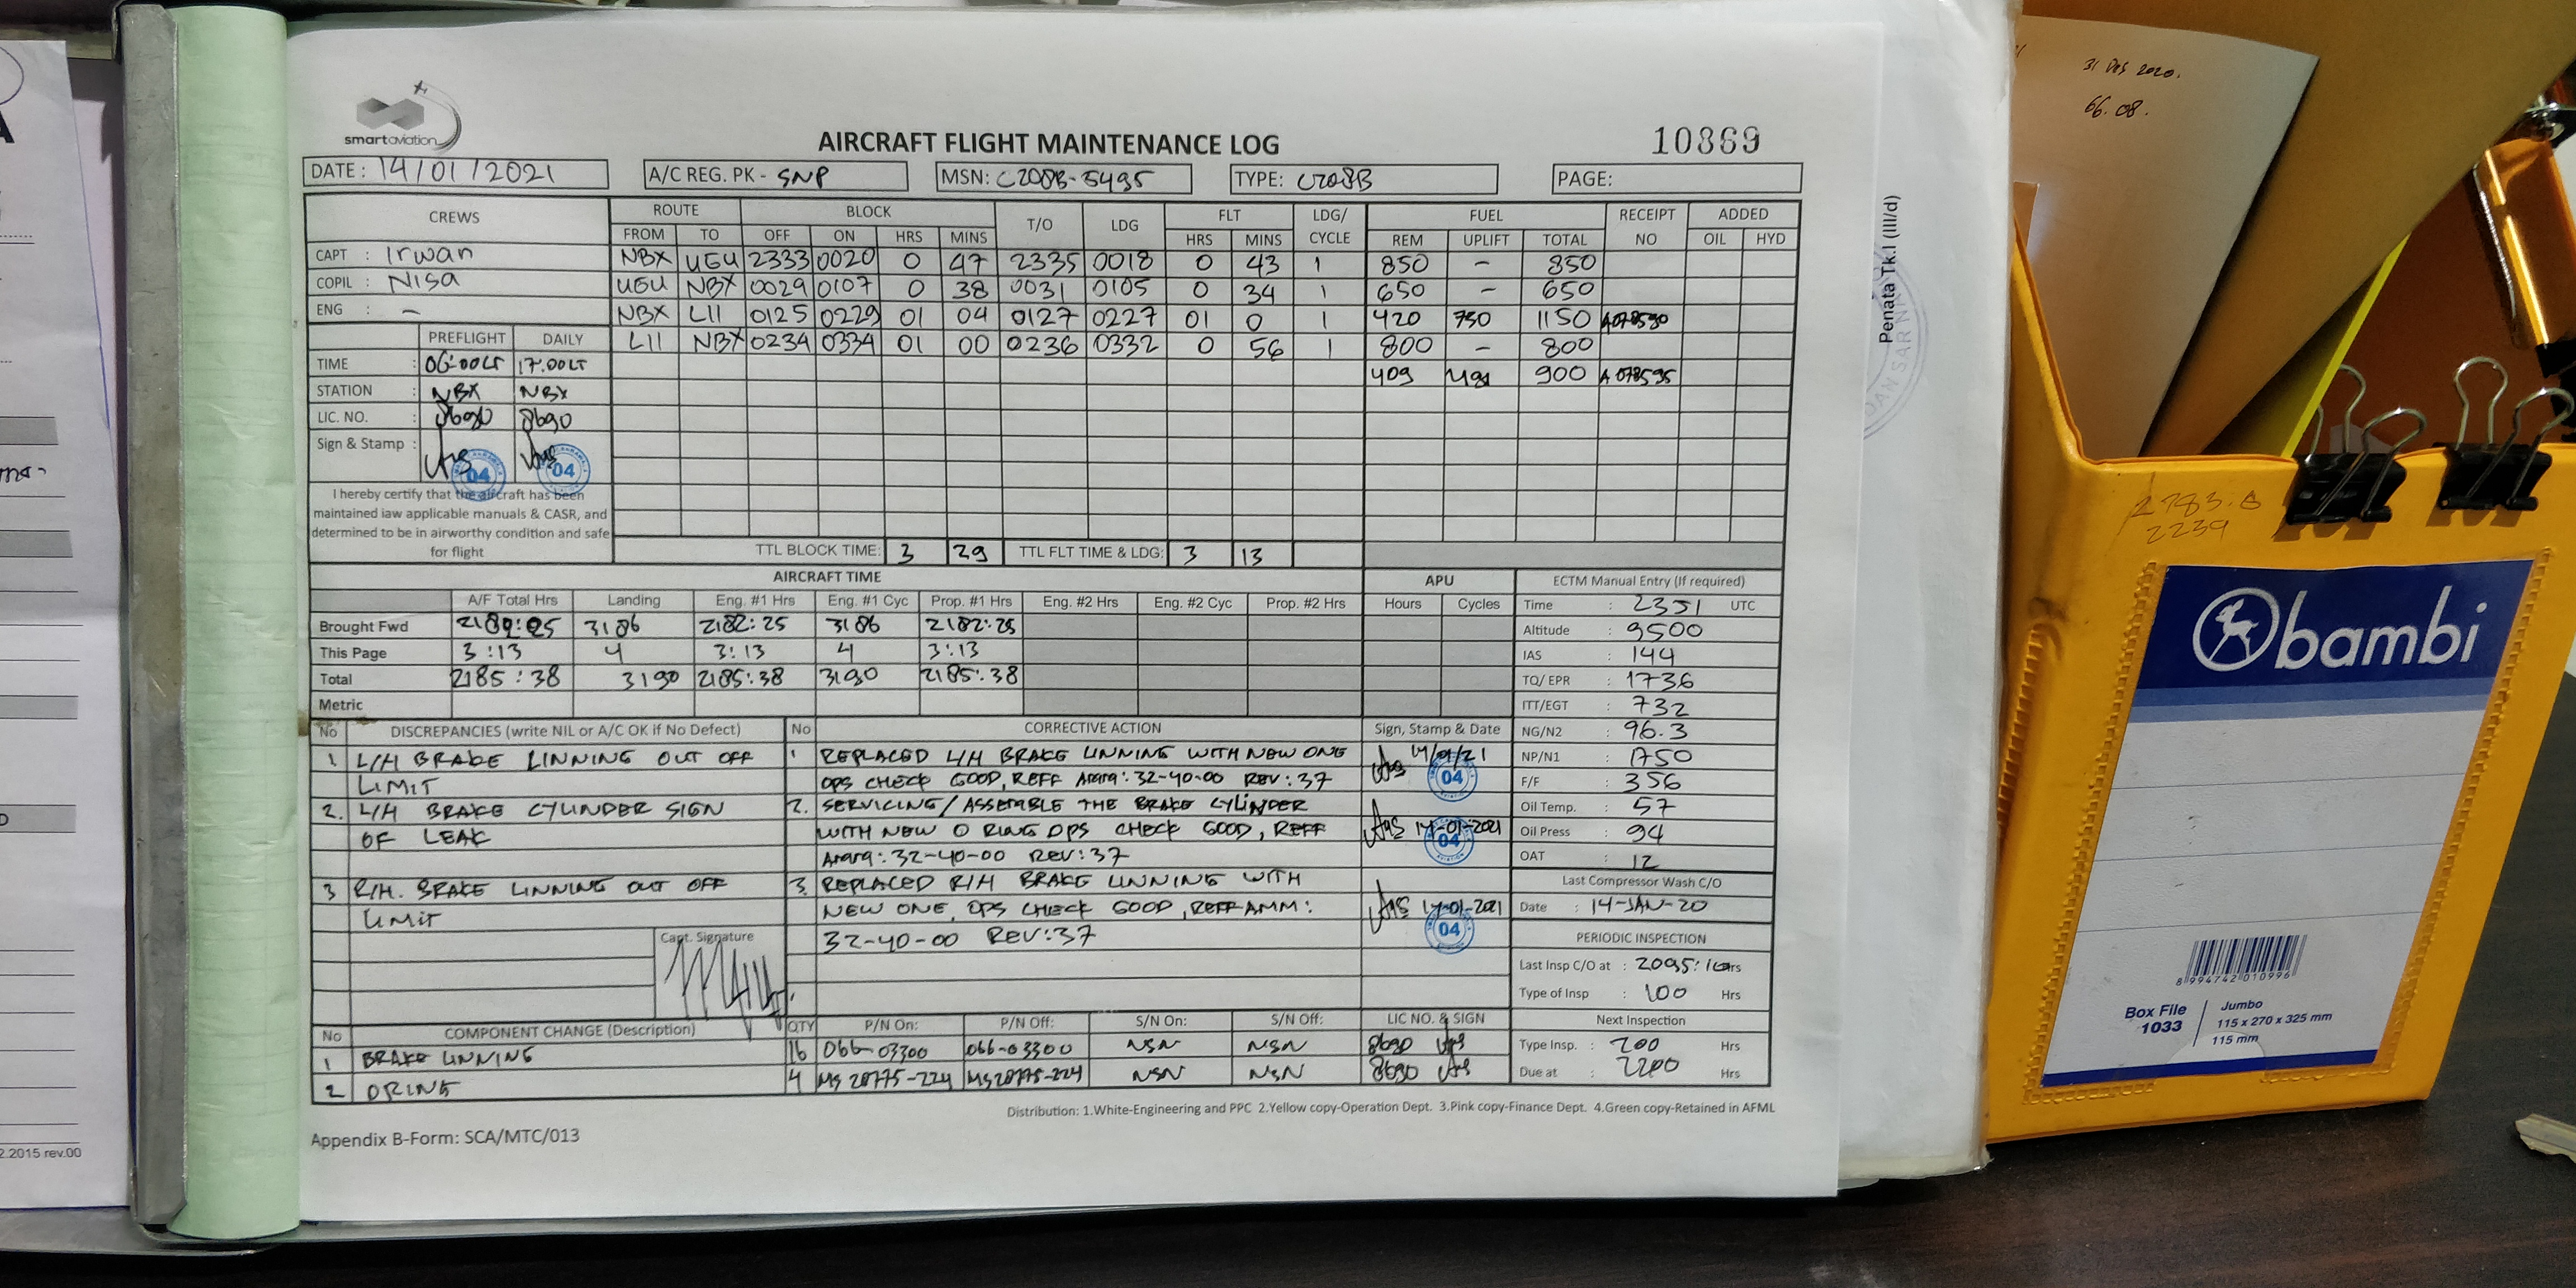 smartaviation
AIRCRAFT FLIGHT MAINTENANCE LOG
10869
DATE: 14/01/2021 A/C REG. PK - SNP MSN: C208B-5495 TYPE: C208B PAGE:
CREWS ROUTE BLOCK T/O LDG FLT LDG/ CYCLE FUEL RECEIPT NO ADDED
FROM TO OFF ON HRS MINS HRS MINS REM UPLIFT TOTAL OIL HYD
CAPT : Irwan NBX UGU 2333 0020 0 47 2335 0018 0 43 1 850 - 850
COPIL : Nisa UGU NBX 0029 0107 0 38 0031 0105 0 34 1 650 - 650
ENG : - NBX LII 0125 0229 01 04 0127 0227 01 0 1 420 750 1150 A078590
LII NBX 0234 0334 01 00 0236 0332 0 56 1 800 - 800
409 491 900 A078595
PREFLIGHT DAILY
TIME : 06:00LT 17.00LT
STATION : NBX NBX
LIC. NO. : 8690 8690
Sign & Stamp : 04 04
I hereby certify that the aircraft has been
maintained iaw applicable manuals & CASR, and
determined to be in airworthy condition and safe
for flight
TTL BLOCK TIME: 3 29 TTL FLT TIME & LDG: 3 13
AIRCRAFT TIME APU ECTM Manual Entry (If required)
A/F Total Hrs Landing Eng. #1 Hrs Eng. #1 Cyc Prop. #1 Hrs Eng. #2 Hrs Eng. #2 Cyc Prop. #2 Hrs Hours Cycles
Brought Fwd 2182:25 3186 2182:25 3186 2182:25
This Page 3:13 4 3:13 4 3:13
Total 2185:38 3190 2185:38 3190 2185:38
Metric
Time : 2351 UTC
Altitude : 9500
IAS : 144
TQ/ EPR : 1736
ITT/EGT : 732
NG/N2 : 96.3
NP/N1 : 1750
F/F : 356
Oil Temp. : 57
Oil Press : 94
OAT : 12
Last Compressor Wash C/O
Date : 14-JAN-20
PERIODIC INSPECTION
Last Insp C/O at : 2095:10 Hrs
Type of Insp : 100 Hrs
Next Inspection
Type Insp. : 200 Hrs
Due at : 2200 Hrs
No DISCREPANCIES (write NIL or A/C OK if No Defect) No CORRECTIVE ACTION Sign, Stamp & Date
1 L/H BRAKE LINNING OUT OFF
LIMIT
2. L/H BRAKE CYLINDER SIGN
OF LEAK
3 R/H. BRAKE LINNING OUT OFF
LIMIT
Capt. Signature
1 REPLACED L/H BRAKE LINNING WITH NEW ONE
OPS CHECK GOOD, REFF AMM: 32-40-00 REV:37
14/01/21
04
2. SERVICING/ASSEMBLE THE BRAKE CYLINDER
WITH NEW O RING OPS CHECK GOOD, REFF
AMM: 32-40-00 REV:37
14-01-2021
04
3. REPLACED R/H BRAKE LINNING WITH
NEW ONE, OPS CHECK GOOD, REFF AMM:
32-40-00 REV:37
14-01-2021
04
No COMPONENT CHANGE (Description) QTY P/N On: P/N Off: S/N On: S/N Off: LIC NO. & SIGN
1 BRAKE LINNING 16 066-03300 066-03300 NSN NSN 8690
2 ORING 4 MS28775-224 MS28775-224 NSN NSN 8690
Distribution: 1.White-Engineering and PPC 2.Yellow copy-Operation Dept. 3.Pink copy-Finance Dept. 4.Green copy-Retained in AFML
Appendix B-Form: SCA/MTC/013
2.2015 rev.00
Penata Tk.I (III/d)
31 DES 2020.
66.08.
2783.8
2239
bambi
8 994742 010996
Box File
1033
Jumbo
115 x 270 x 325 mm
115 mm